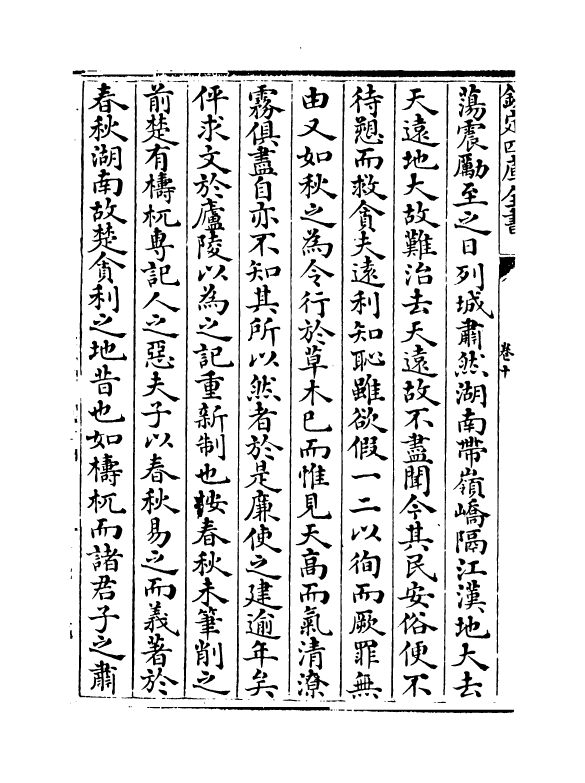 欽定四庫全書
卷十
蕩震勵至之日列城肅然湖南帶嶺嶠隔江漢地大去
天遠地大故難治去天遠故不盡聞今其民安俗便不
待愬而救貪夫遠利知恥雖欲假一二以徇而厥罪無
由又如秋之為令行於草木已而惟見天高而氣清潦
霧俱盡自亦不知其所以然者於是廉使之建逾年矣
伻求文於廬陵以為之記重新制也按春秋未筆削之
前楚有檮杌專記人之惡夫子以春秋易之而義著於
春秋湖南故楚貪利之地昔也如檮杌而諸君子之肅